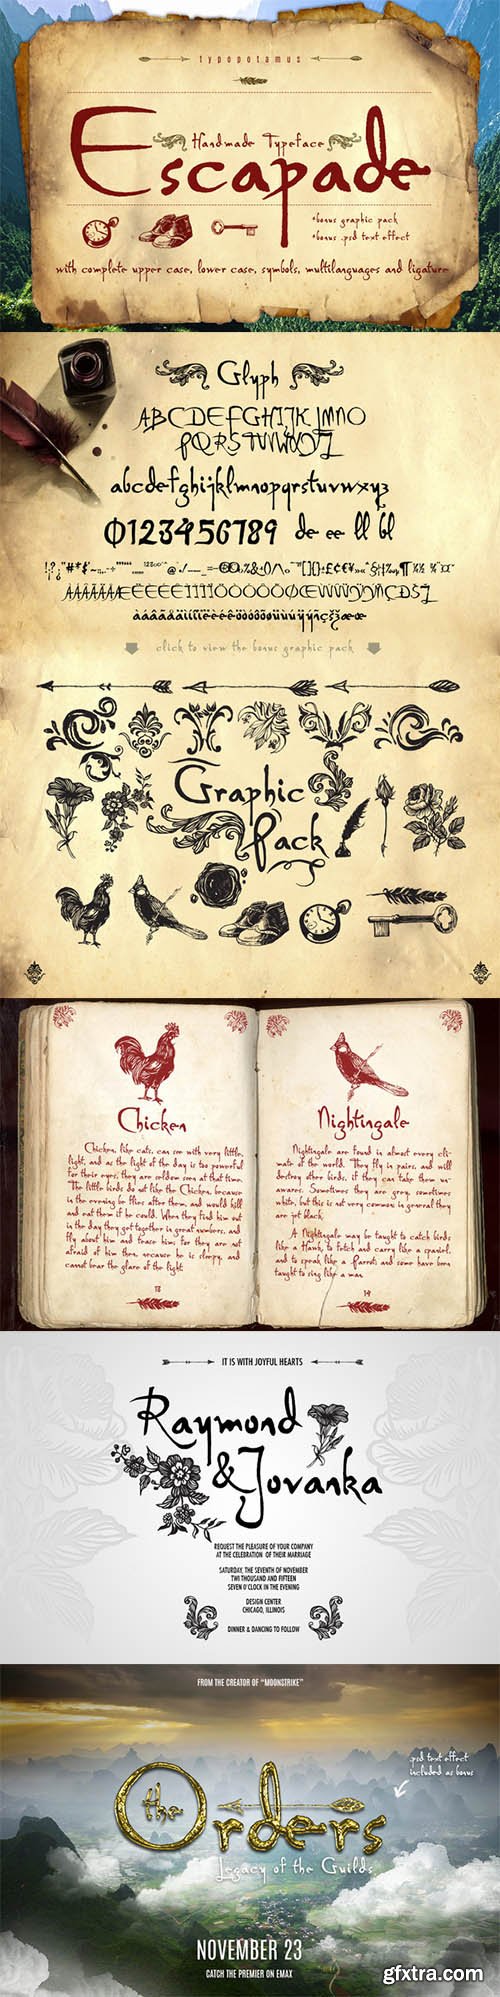 typopotamus
Handmade Typeface
Escapade
*bonus graphic pack
*bonus .psd text effect
with complete upper case, lower case, symbols, multilanguages and ligature
Glyph
ABCDEFGHIJKLMNO
PQRSTUVWXYZ
abcdefghijklmnopqrstuvwxyz
0123456789 de ee ll bl
click to view the bonus graphic pack
Graphic
Pack
Chicken
Chicken, like cats, can see with very little
light, and as the light of the day is too powerful
for their eyes, they are seldom seen at that time.
The little birds do not like the Chicken, because
in the evening he flies after them, and would kill
and eat them if he could. When they find him out
in the day they get together in great numbers, and
fly about him and tease him; for they are not
afraid of him then, because he is sleepy, and
cannot bear the glare of the light.
13
Nightingale
Nightingale are found in almost every cli-
mate of the world. They fly in pairs, and will
destroy other birds, if they can take them un-
awares. Sometimes they are grey, sometimes
white, but this is not very common in general they
are jet black.
A Nightingale may be taught to catch birds
like a Hawk, to fetch and carry like a spaniel,
and to speak like a Parrot; and some have been
taught to sing like a man.
14
IT IS WITH JOYFUL HEARTS
Raymond
& Jovanka
REQUEST THE PLEASURE OF YOUR COMPANY
AT THE CELEBRATION OF THEIR MARRIAGE
SATURDAY, THE SEVENTH OF NOVEMBER
TWI THOUSAND AND FIFTEEN
SEVEN O'CLOCK IN THE EVENING
DESIGN CENTER
CHICAGO, ILLINOIS
DINNER & DANCING TO FOLLOW
FROM THE CREATOR OF "MOONSTRIKE"
.psd text effect
included as bonus
the Orders
Legacy of the Guilds
NOVEMBER 23
CATCH THE PREMIER ON EMAX
gfxtra.com